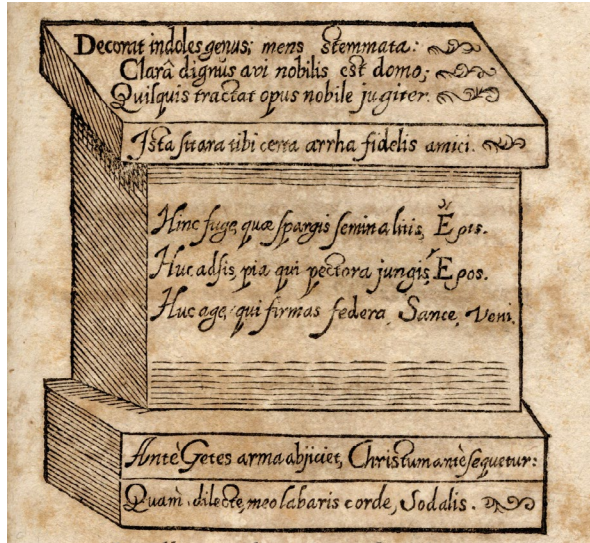 Decorat indoles genus; mens stemmata:
Clarâ dignus avi nobilis est domo;
Quisquis tractat opus nobile jugiter.
Ista sit ara tibi certa arrha fidelis amici.
Hinc fuge, quæ spargis semina litis, Eρις.
Huc adsis, pia qui pectora jungis, Eρος.
Huc age, qui firmas fœdera, Sance, Veni.
Antè Getes arma abjiciet, Christum antè sequetur:
Quam, dilecte, meo labaris corde, Sodalis.